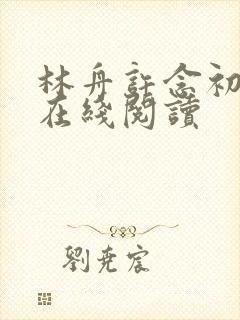 林舟許念初
在綫閱讀
劉堯宸